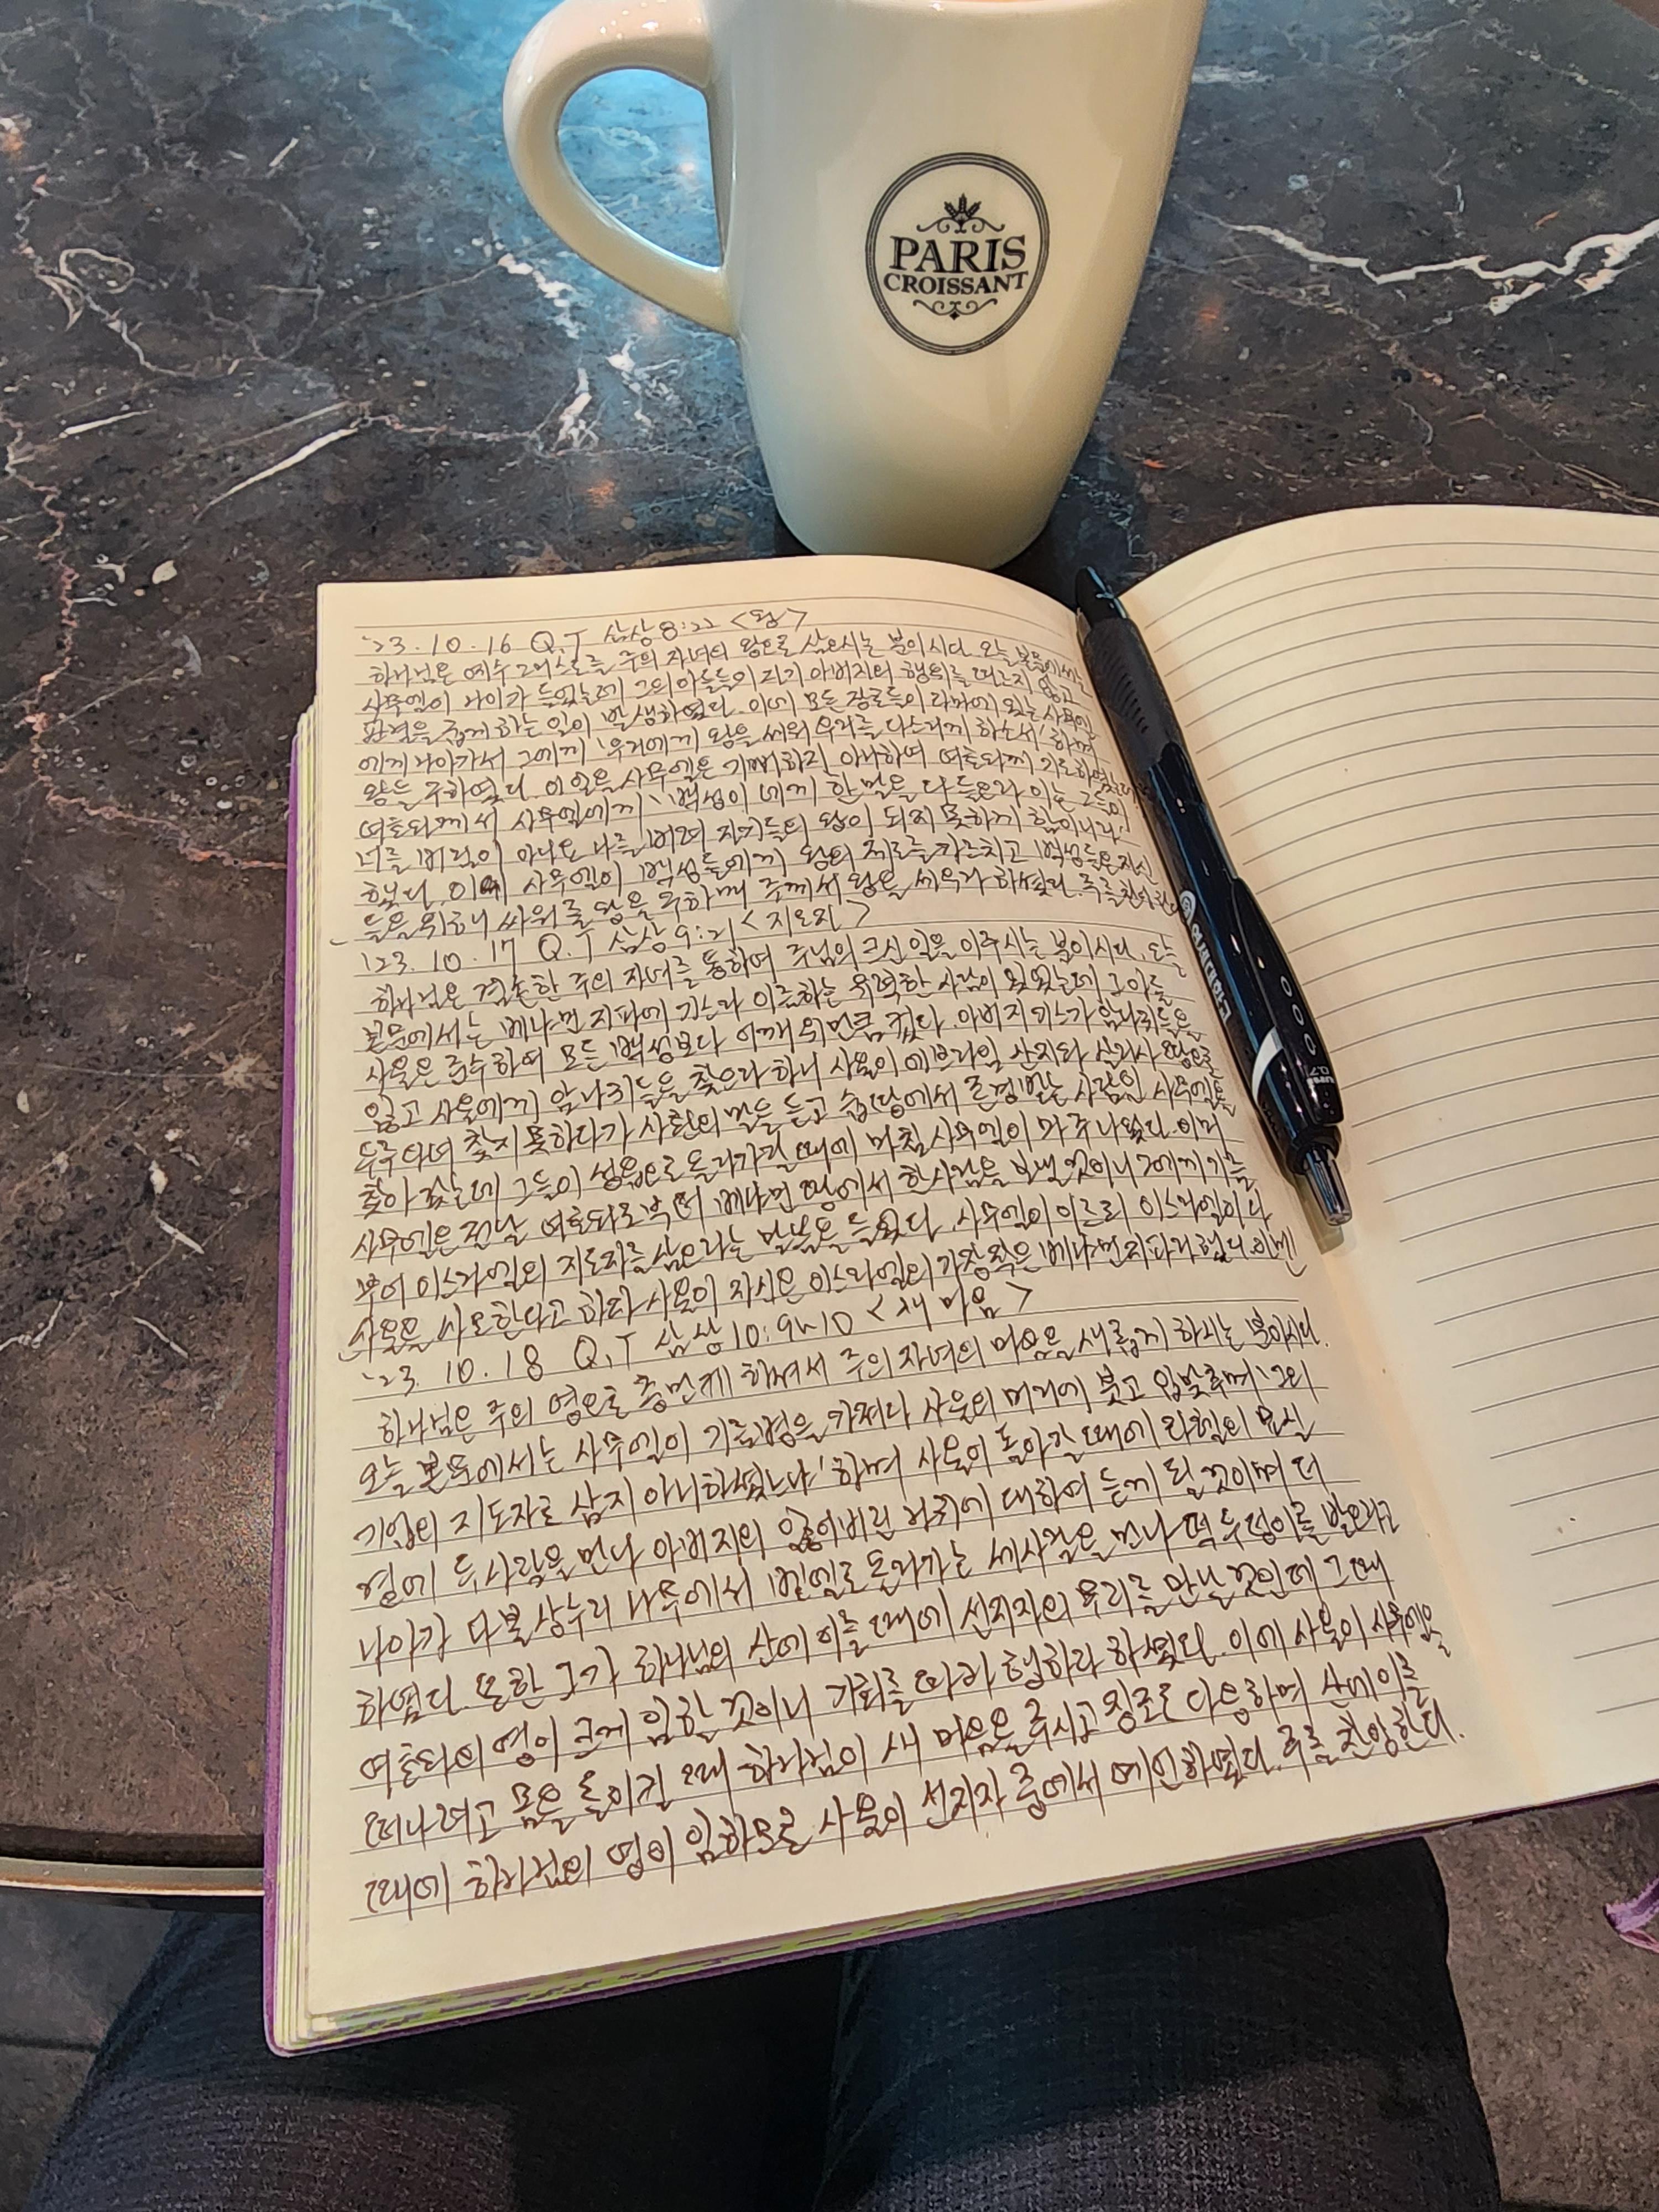 PARIS
CROISSANT
'23. 10. 16 Q.T 삼상 8:22 <왕>
하나님은 예수 그리스도를 주의 자녀의 왕으로 삼으시는 분이시다. 오늘 본문에서는
사무엘이 나이가 들었는데 그의 아들들이 자기 아버지의 행위를 따르지 않고
판결을 굽게 하는 일이 발생하였다. 이에 모든 장로들이 라마에 있는 사무엘
에게 나아가서 그에게 '우리에게 왕을 세워 우리를 다스리게 하소서' 하며
왕을 구하였다. 이 일을 사무엘은 기뻐하지 아니하여 여호와께 기도하였는데
여호와께서 사무엘에게 '백성이 네게 한 말을 다 들으라 이는 그들이
너를 버림이 아니요 나를 버려 자기들의 왕이 되지 못하게 함이니라'
했다. 이에 사무엘이 백성들에게 왕의 제도를 가르치고 백성들은 자신
들을 위하니 싸워 줄 왕을 구하매 주께서 왕을 세우라 하셨다. 주를 찬양한다
'23. 10. 17 Q.T 삼상 9:21 <지도자>
하나님은 겸손한 주의 자녀를 통하여 주님의 크신 일을 이루시는 분이시다. 오늘
본문에서는 베냐민 지파에 기스라 이름하는 유력한 사람이 있었는데 그 아들
사울은 준수하여 모든 백성보다 어깨 위만큼 컸다. 아버지 기스가 암나귀들을
잃고 사울에게 암나귀들을 찾으라 하니 사울이 에브라임 산지와 살리사 땅으로
두루 다녀 찾지 못하다가 사환의 말을 듣고 숩 땅에서 존경받는 사람인 사무엘을
찾아 갔는데 그들이 성읍으로 올라가갈 때에 마침 사무엘이 마주 나왔다. 이미
사무엘은 전날 여호와로부터 베냐민 땅에서 한 사람을 보낼 것이니 그에게 기름
부어 이스라엘의 지도자를 삼으라는 말씀을 들었다. 사무엘이 이르되 이스라엘이 다
사울을 사모한다고 하자 사울이 자신은 이스라엘의 가장 작은 베냐민 지파라 했다.
'23. 10. 18 Q.T 삼상 10:9~10 <새 마음>
하나님은 주의 영으로 충만케 하셔서 주의 자녀의 마음을 새롭게 하시는 분이시다.
오늘 본문에서는 사무엘이 기름병을 가져다 사울의 머리에 붓고 입맞추며 '그의
기업의 지도자로 삼지 아니하셨느냐' 하며 사울이 돌아갈 때에 라헬의 묘실
옆에 두 사람을 만나 아버지의 잃어버린 나귀에 대하여 듣게 될 것이며 더
나아가 다볼 상수리 나무에서 벧엘로 올라가는 세 사람을 만나 떡 두 덩이를 받으라고
하였다. 또한 그가 하나님의 산에 이를 때에 선지자의 무리를 만날 것인데 그때
여호와의 영이 크게 임할 것이니 기회를 따라 행하라 하셨다. 이에 사울이 사무엘을
떠나려고 몸을 돌이킬 때 하나님이 새 마음을 주시고 징조로 다 응하며 산에 이를
때에 하나님의 영이 임하므로 사울이 선지자 중에서 예언하였다. 주를 찬양한다.